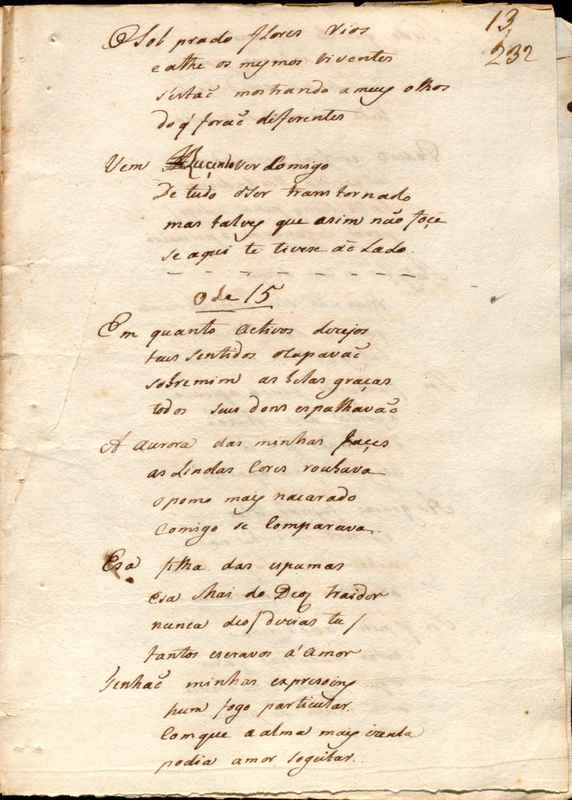 13,
232
O Sol prado flores rios
e athe os mesmos viventes
s'estaõ mostrando a meus olhos
do q' foraõ diferentes
Vem ver comigo
de tudo o ser transtornado
mas talves que asim não foçe
se aqui te tivese aõ lado.
Ode 15
Em quanto activos dezejos
teus sentidos ocupavaõ
sobre mim as belas graças
todos seus dons espalhavaõ
A Aurora das minhas façes
as lindas cores roubava
o pomo mais nacarado
comigo se comparava.
Esa filha das espumas
esa Mai do Deos traidor
nunca deo / dizias tu /
tantos escravos á Amor
Tenhaõ minhas expresoins
hum fogo particular.
Com que a alma mais izenta
podia amor sogeitar.